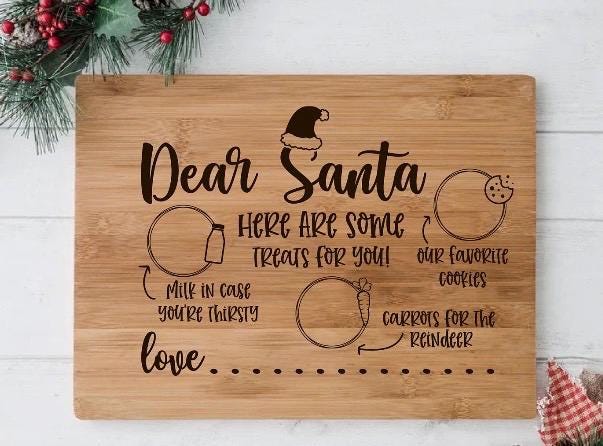 Dear Santa
HERE ARE SOME
TREATS FOR YOU!
OUR FAVORITE
COOKIES
MILK IN CASE
YOU'RE THIRSTY
CARROTS FOR THE
REINDEER
love..................